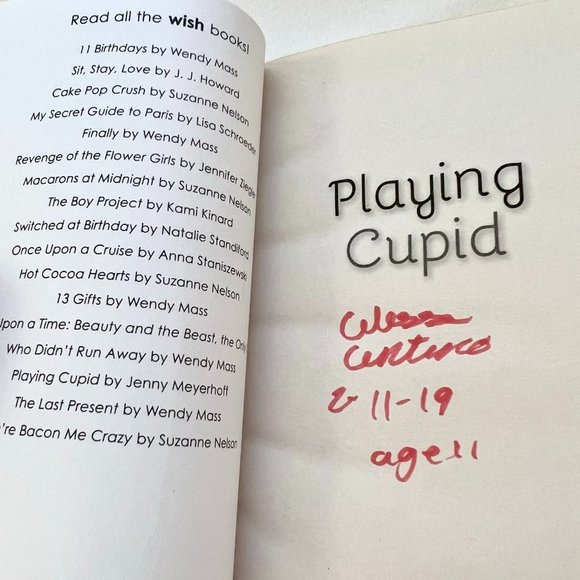 Read all the wish books!
11 Birthdays by Wendy Mass
Sit, Stay, Love by J. J. Howard
Cake Pop Crush by Suzanne Nelson
My Secret Guide to Paris by Lisa Schroeder
Finally by Wendy Mass
Revenge of the Flower Girls by Jennifer Ziegle
Macarons at Midnight by Suzanne Nelson
The Boy Project by Kami Kinard
Switched at Birthday by Natalie Standiford
Once Upon a Cruise by Anna Staniszewski
Hot Cocoa Hearts by Suzanne Nelson
13 Gifts by Wendy Mass
Upon a Time: Beauty and the Beast, the Only
Who Didn't Run Away by Wendy Mass
Playing Cupid by Jenny Meyerhoff
The Last Present by Wendy Mass
're Bacon Me Crazy by Suzanne Nelson
Playing
Cupid
11-19
age 11